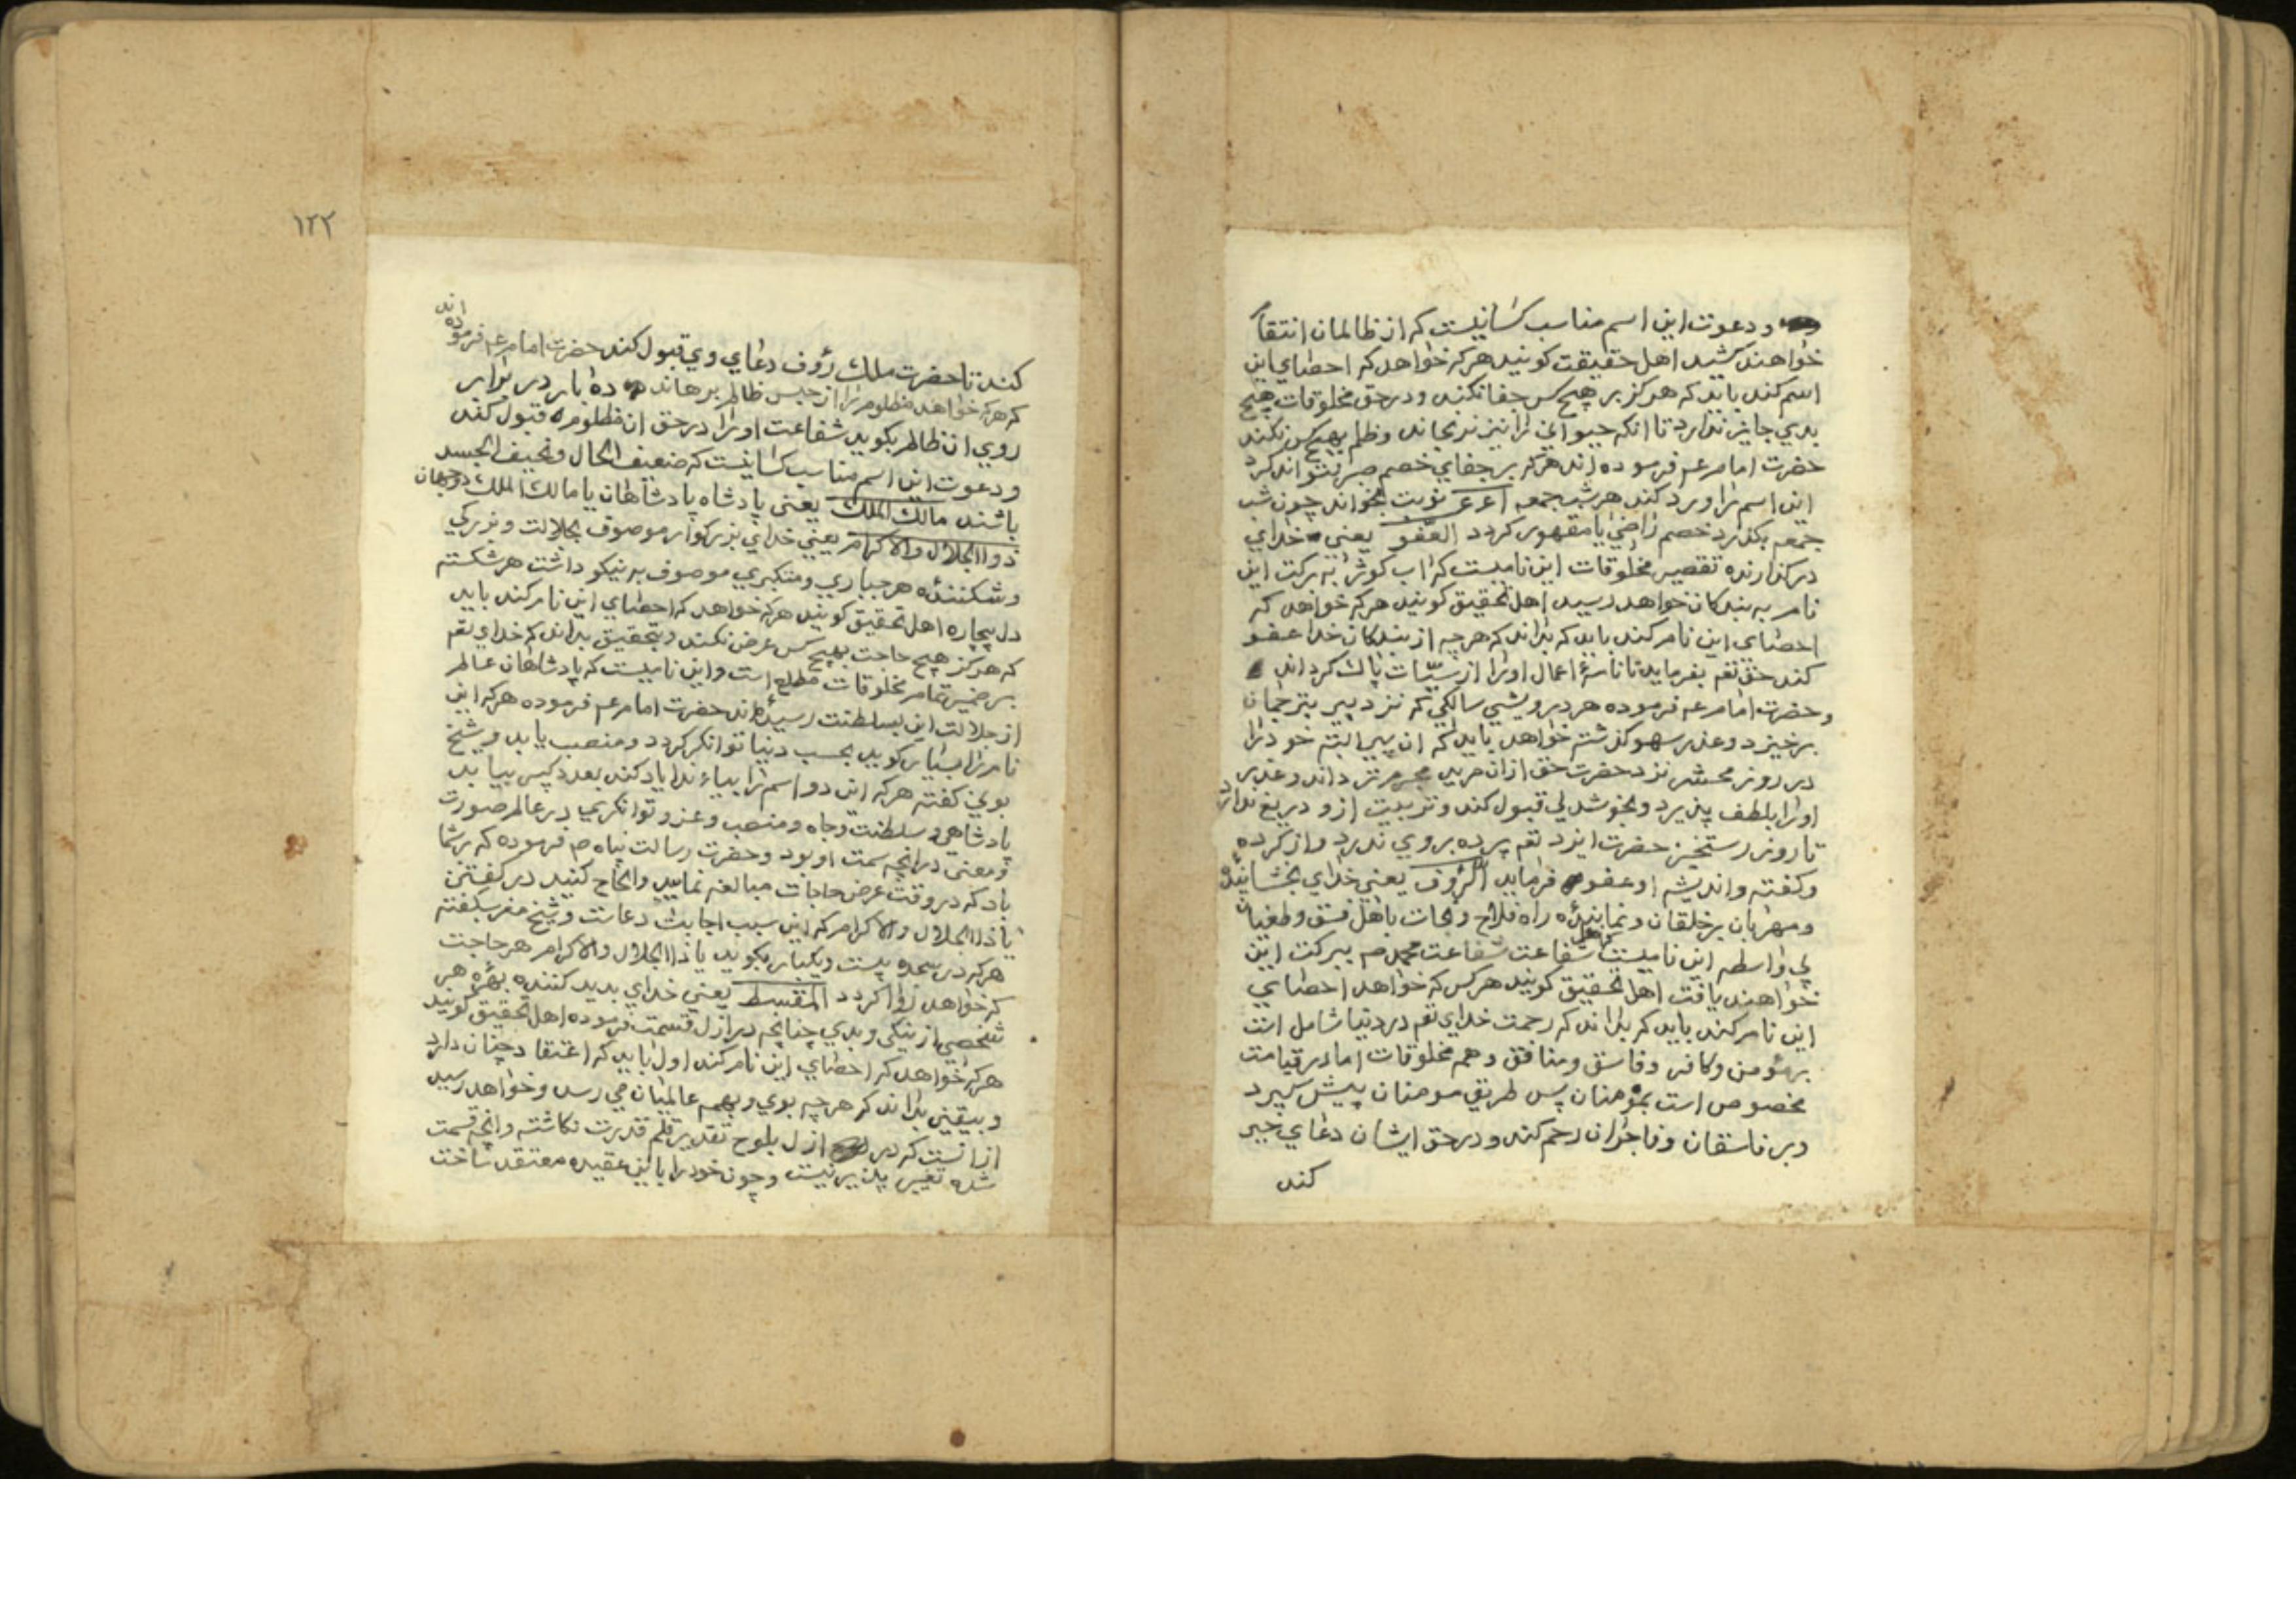 و دعوت این اسم مناسب کسانیست که از ظالمان انتقام
خواهند کشید اهل حقیقت کویند هرکه خواهد که احصای این
اسم کند باید که هرکز بر هیچ کس جفا نکند و در حق مخلوقات هیچ
بدی جایز ندارد تا انکه حیوانی را نیز نرنجاند و ظلم بهیچ کس نکند
حضرت امام عم فرموده اند هرکه بر جفای خصم صبر نتواند کرد
این اسم را ورد کند هر شب جمعه نوبت بخواند چون شب
جمعه بکذرد خصم راضی یا مقهور کردد العفو یعنی خدای
درکذارنده تقصیر مخلوقات این نامیست که اب کوثر به برکت این
نام به بندکان خواهد رسید اهل تحقیق کویند هرکه خواهد که
احصای این نام کند باید که بداند که هرچه از بندکان خدا عفو
کند حق تعم بفرماید تا نامهٔ اعمال اورا از سیّات پاک کرداند
و حضرت امام عم فرموده هر درویشی سالکی که نزد پیر بترجمان
برخیزد و عذر سهو کذشته خواهد باید که ان پیر البته خود را
در روز محشر نزد حضرت حق ازان مرید مجرم تر داند و عذر
اورا بلطف پذیرد و بخوشدلی قبول کند و تربیت ازو دریغ ندارد
تا روز رستخیز حضرت ایزد تعم پرده بروی ندرد و از کرده
و کفته و اندیشه او عفو فرماید الرؤف یعنی خدای بخشاینده
و مهربان بر خلقان و نماینده راه فلاح و نجات باهل فسق و طغیان
بی واسطه این نامیست که اهل شفاعت شفاعت محمد صم ببرکت این
خواهند یافت اهل تحقیق کویند هرکس که خواهد احصای
این نام کند باید که بداند که رحمت خدای تعم در دنیا شامل است
بر مؤمن و کافر و فاسق و منافق و همه مخلوقات اما در قیامت
مخصوص است بمؤمنان پس طریق مومنان پیش کیرد
و بر فاسقان و فاجران رحم کند و در حق ایشان دعای خیر
کند
۱۲۲
کند تا حضرت ملک رؤف دعای وی قبول کند حضرت امام عم فرموده اند
که هرکه خواهد مظلوم را از حبس ظالم برهاند ده بار در برابر
روی ان ظالم بکوید شفاعت اورا در حق ان مظلوم قبول کند
و دعوت این اسم مناسب کسانیست که ضعیف الحال و نحیف الجسد
باشند مالک الملک یعنی پادشاه پادشاهان یا مالک الملک دو جهان
ذوالجلال والاکرام یعنی خدای بزرکوار موصوف بجلالت و بزرکی
و شکننده هر جباری و متکبری موصوف به نیکو داشت هر شکسته
دل بیچاره اهل تحقیق کویند هرکه خواهد که احصای این نام کند باید
که هرکز هیچ حاجت بهیچ کس عرض نکند و بتحقیق بداند که خدای تعم
بر ضمیر تمام مخلوقات مطلع است و این نامیست که پادشاهان عالم
از جلالت این بسلطنت رسیده اند حضرت امام عم فرموده هرکه این
نام را بسیار کوید بحسب دنیا توانکر کردد و منصب یابد و شیخ
بونی کفته هرکه این دو اسم را بیاء ندا یاد کند بعد کبیر بیابد
پادشاهی و سلطنت و جاه و منصب و عز و توانکری در عالم صورت
و معنی درانچه سمت او بود و حضرت رسالت پناه صم فرموده که بر شما
باد که در وقت عرض حاجات مبالغه نمایید و الحاح کنید در کفتن
یا ذا الجلال والاکرام که این سبب اجابت دعاست و شیخ مغربی کفته
هرکه در سجده بیست و یکبار بکوید یا ذا الجلال والاکرام هر حاجت
که خواهد روا کردد المقسط یعنی خدای پدید کننده بهرهٔ هر
شخصی از نیکی و بدی چنانچه در ازل قسمت فرموده اهل تحقیق کویند
هرکه خواهد که احصای این نام کند اول باید که اعتقاد چنان دارد
و بیقین بداند که هرچه بوی و بهمه عالمیان می رسد و خواهد رسید
ازانست که در ازل بلوح تقدیر قلم قدرت نکاشته و انچه قسمت
شده تغییر پذیر نیست و چون خود را باین عقیده معتقد ساخت